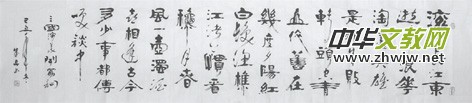 滚滚長江東
逝水浪花
淘盡英雄
是非成敗
轉頭空青
山依舊在
幾度夕陽紅
白髮漁樵
江渚上慣看
秋月春
風一壺濁酒
喜相逢古今
多少事都付
笑談中
中华文教网